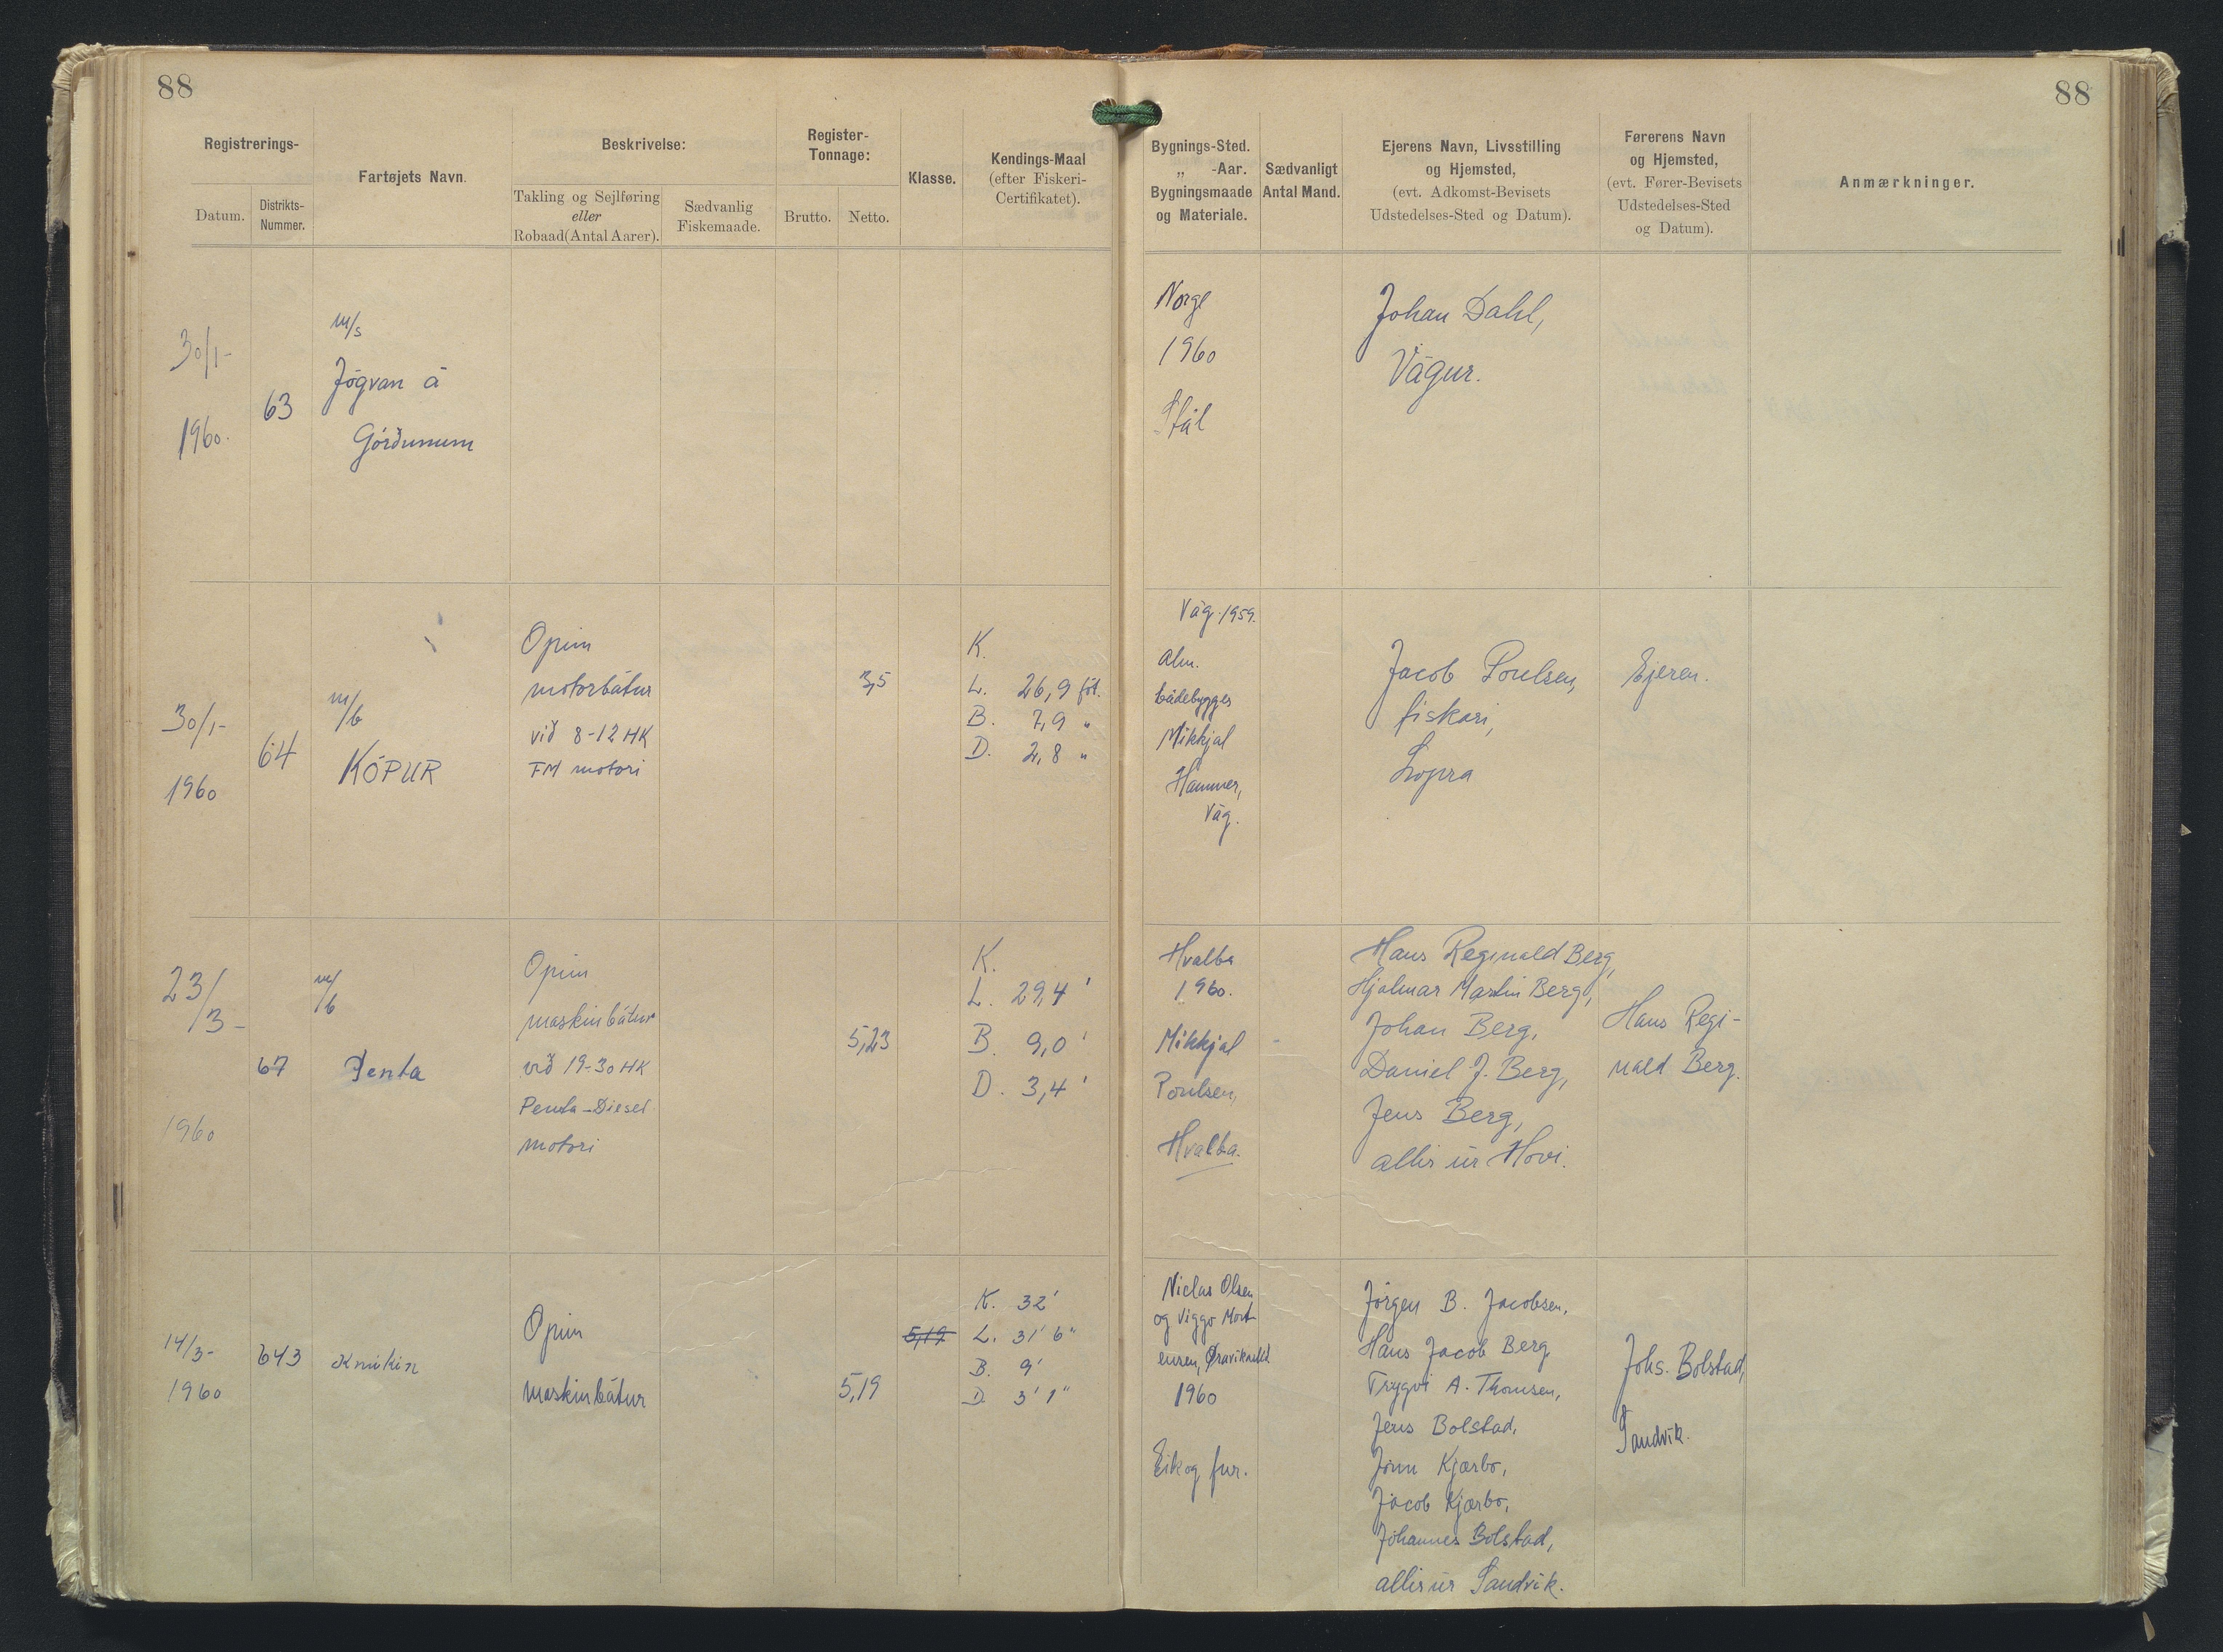 88
88
Registrerings-
Datum.
Distrikts-
Nummer.
Fartøjets Navn.
Beskrivelse:
Takling og Sejlføring
eller
Robaad (Antal Aarer).
Sædvanlig
Fiskemaade.
Register-
Tonnage:
Brutto.
Netto.
Klasse.
Kendings-Maal
(efter Fiskeri-
Certifikatet).
Bygnings-Sted.
„ -Aar.
Bygningsmaade
og Materiale.
Sædvanligt
Antal Mand.
Ejerens Navn, Livsstilling
og Hjemsted,
(evt. Adkomst-Bevisets
Udstedelses-Sted og Datum).
Førerens Navn
og Hjemsted,
(evt. Fører-Bevisets
Udstedelses-Sted
og Datum).
Anmærkninger.
30/1-
1960.
63
m/s
Jógvan á
Górðunum
Norge
1960
Stál
Johan Dahl,
Vágur.
30/1-
1960
64
m/b
KÓPUR
Opin
motorbátur
við 8-12 HK
FM motori
3,5
K.
L. 26,9 föt.
B. 7,9 "
D. 2,8 "
Vág. 1959.
Alm.
bådebygger
Mikkjal
Hammer,
Vág.
Jacob Poulsen,
fiskari,
Lopra
Ejeren.
23/3-
1960
67
m/b
Penta
Opin
maskinbátur
við 19-30 HK
Penta-Diesel
motori
5,23
K.
L. 29,4 '
B. 9,0 '
D. 3,4 '
Hvalba
1960.
Mikkjal
Poulsen,
Hvalba.
Hans Reginald Berg,
Hjalmar Martin Berg,
Johan Berg,
Daniel J. Berg,
Jens Berg,
allir úr Hovi.
Hans Regi-
nald Berg.
14/3-
1960
643
Knikin
Opin
maskinbátur
5,19
5,19
K. 32'
L. 31' 6"
B. 9'
D. 3' 1"
Niclas Olsen
og Viggo Mort-
ensen,
1960
Eik og fur.
Jörgen B. Jacobsen,
Hans Jacob Berg
Trygvi A. Thomsen,
Jens Bolstad,
Jónn Kjærbo,
Jacob Kjærbo,
Jóhannes Bolstad,
allir úr Sandvík.
Johs. Bolstad,
Sandvík.